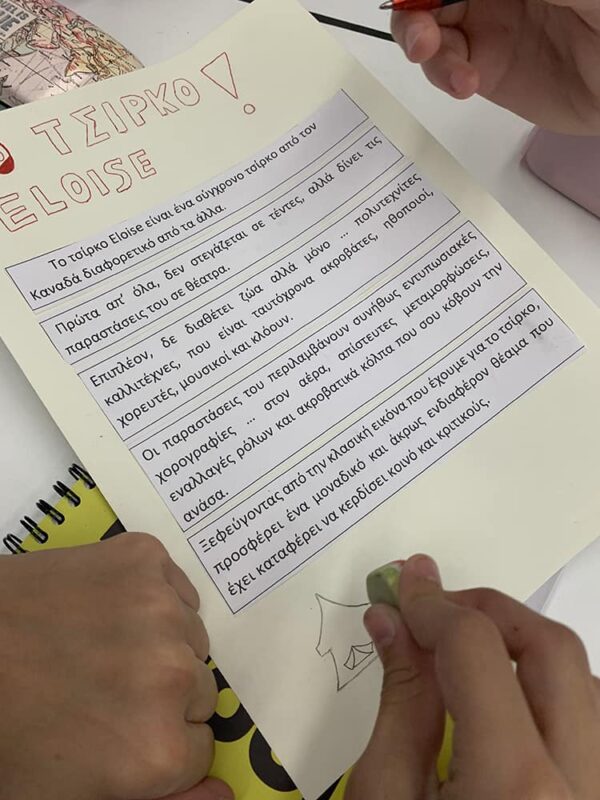 ΤΣΙΡΚΟ!
ELOISE
Το τσίρκο Eloise είναι ένα σύγχρονο τσίρκο από τον
Καναδά διαφορετικό από τα άλλα.
Πρώτα απ' όλα, δεν στεγάζεται σε τέντες, αλλά δίνει τις
παραστάσεις του σε θέατρα.
Επιπλέον, δε διαθέτει ζώα αλλά μόνο ... πολυτεχνίτες
καλλιτέχνες, που είναι ταυτόχρονα ακροβάτες, ηθοποιοί,
χορευτές, μουσικοί και κλόουν.
Οι παραστάσεις του περιλαμβάνουν συνήθως εντυπωσιακές
χορογραφίες ... στον αέρα, απίστευτες μεταμορφώσεις,
εναλλαγές ρόλων και ακροβατικά κόλπα που σου κόβουν την
ανάσα.
Ξεφεύγοντας από την κλασική εικόνα που έχουμε για το τσίρκο,
προσφέρει ένα μοναδικό και άκρως ενδιαφέρον θέαμα που
έχει καταφέρει να κερδίσει κοινό και κριτικούς.